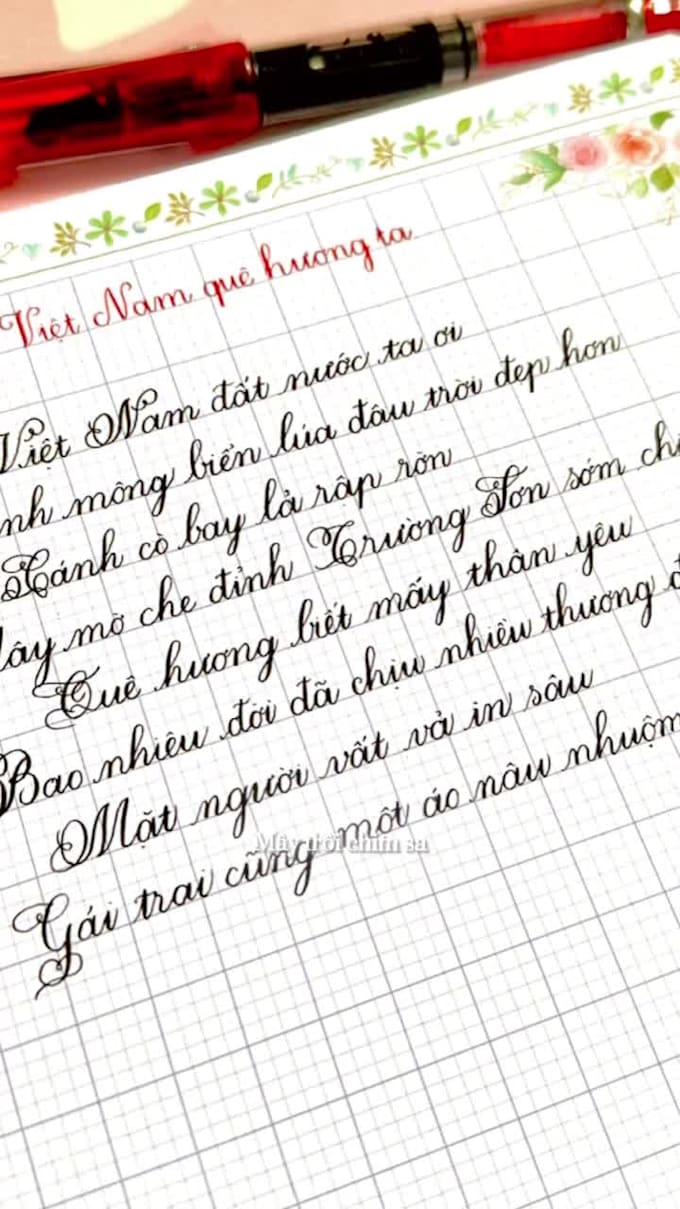 Việt Nam quê hương ta
Việt Nam đất nước ta ơi
nh mông biển lúa đâu trời đẹp hơn
Cánh cò bay lả rập rờn
ây mờ che đỉnh Trường Sơn sớm chi
Quê hương biết mấy thân yêu
Bao nhiêu đời đã chịu nhiều thương đ
Mặt người vất vả in sâu
Gái trai cũng một áo nâu nhuộm
Mây trôi chim sa